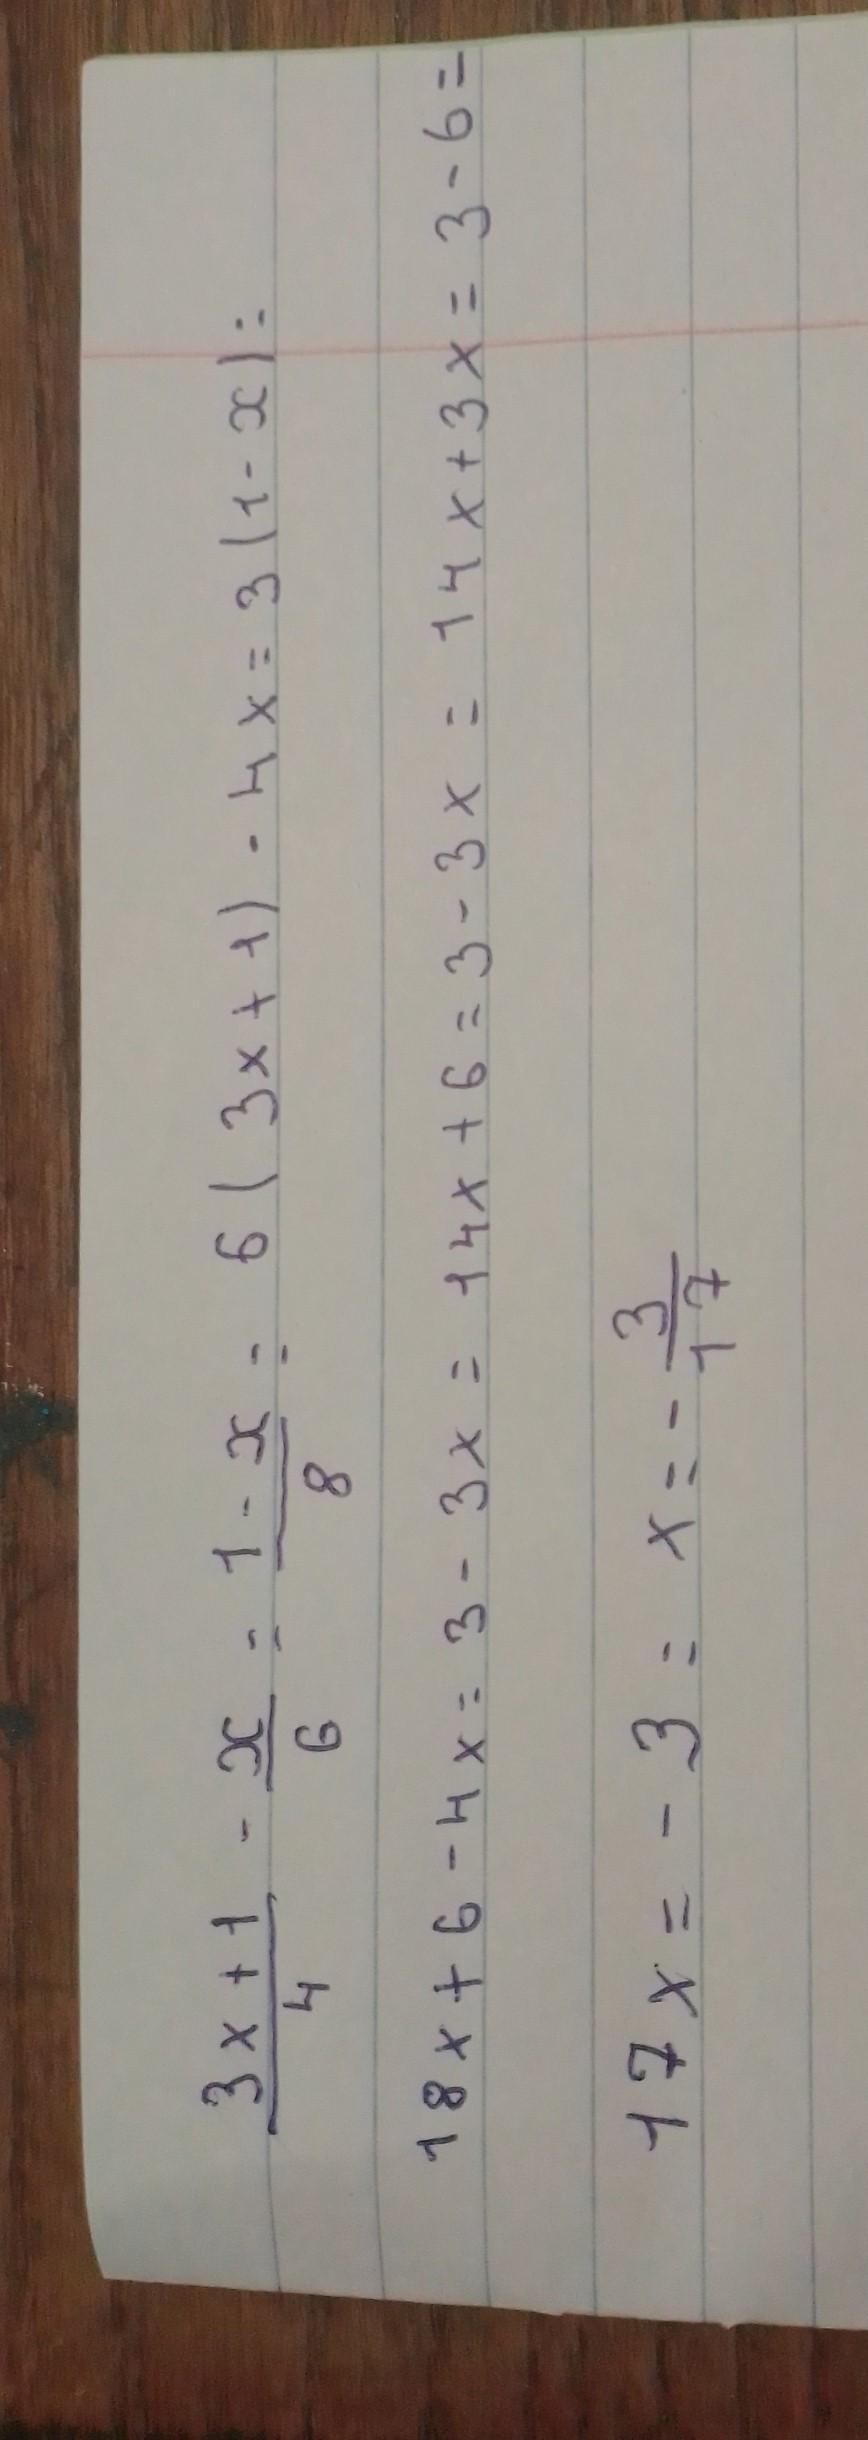 (3x+1)/4 - x/6 = (1-x)/8 = 6(3x+1) - 4x = 3(1-x) =
18x+6-4x = 3-3x = 14x+6 = 3-3x = 14x+3x = 3-6 =
17x = -3 = x = -3/17